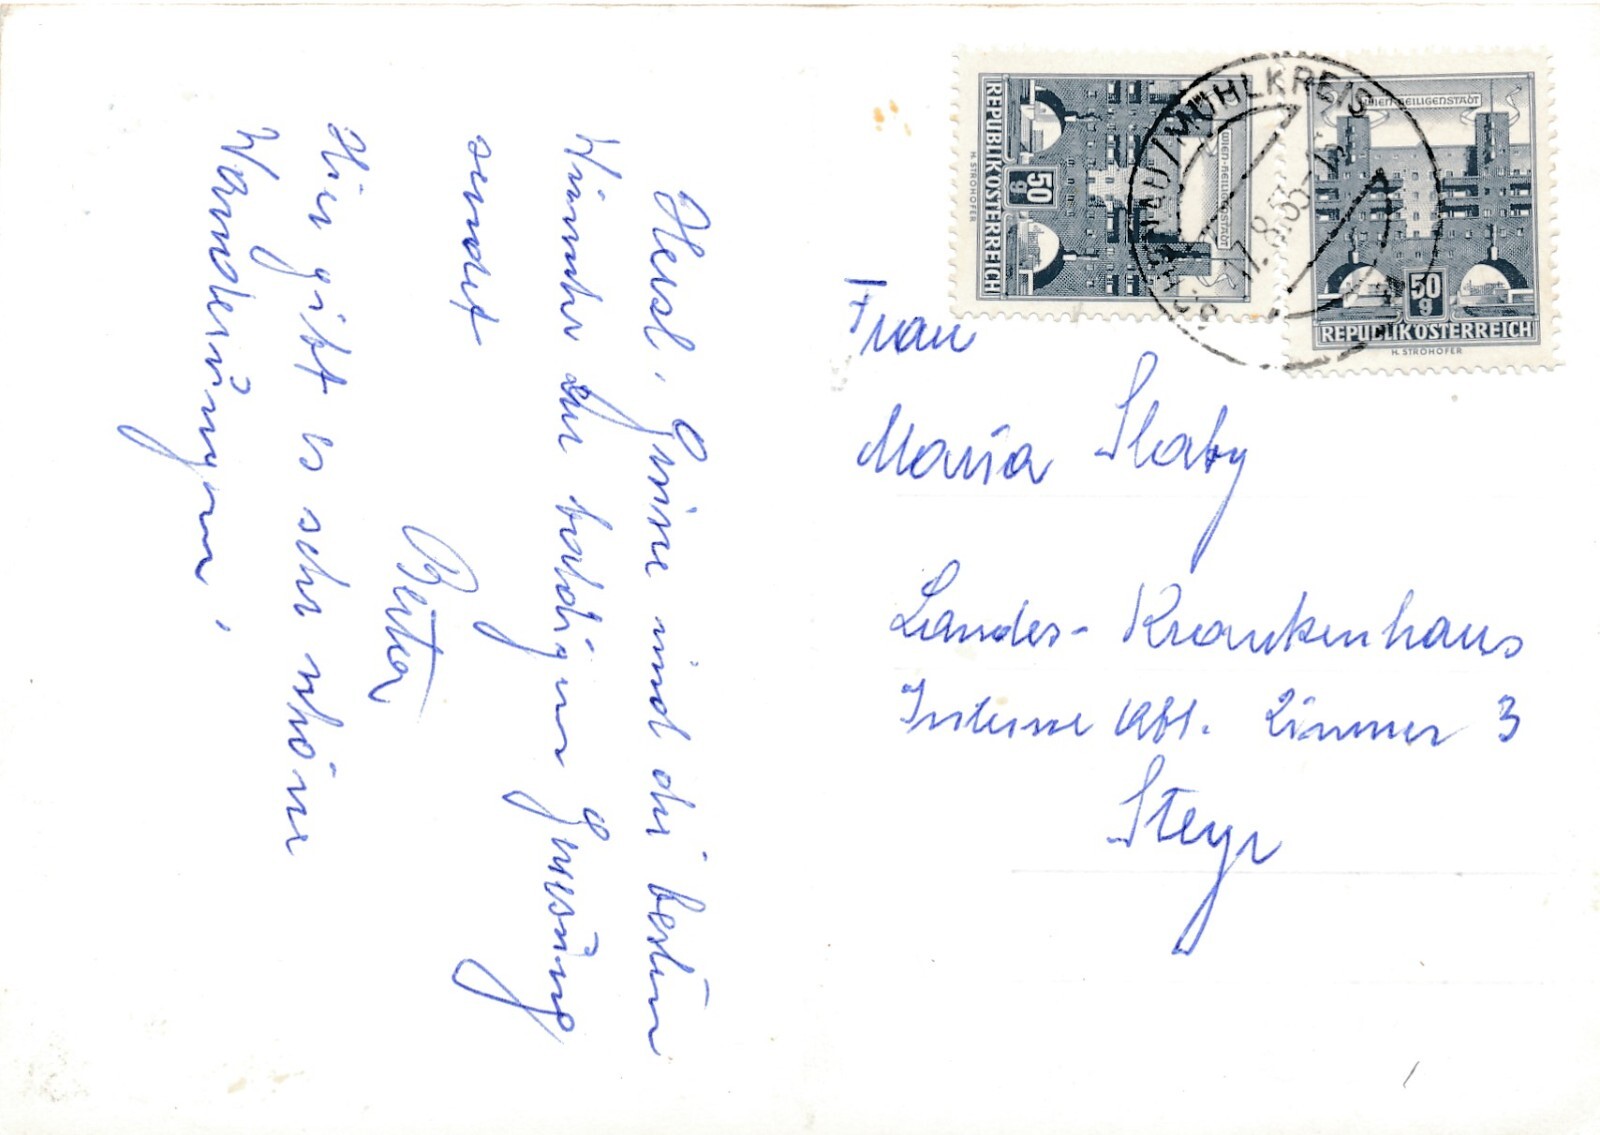 Herzl. Grüsse und die besten
Wünsche zur baldigen Genesung
sendet
Berta
Hier gibt es sehr schöne
Wanderungen.
Frau
Maria Slaby
Landes-Krankenhaus
Interne Abt. Zimmer 3
Steyr
REPUBLIK ÖSTERREICH
50
g
WIEN-HEILIGENSTADT
H. STROHOFER
WIEN-HEILIGENSTADT
50
g
REPUBLIK ÖSTERREICH
H. STROHOFER
MÜHLKREIS
17.8.65